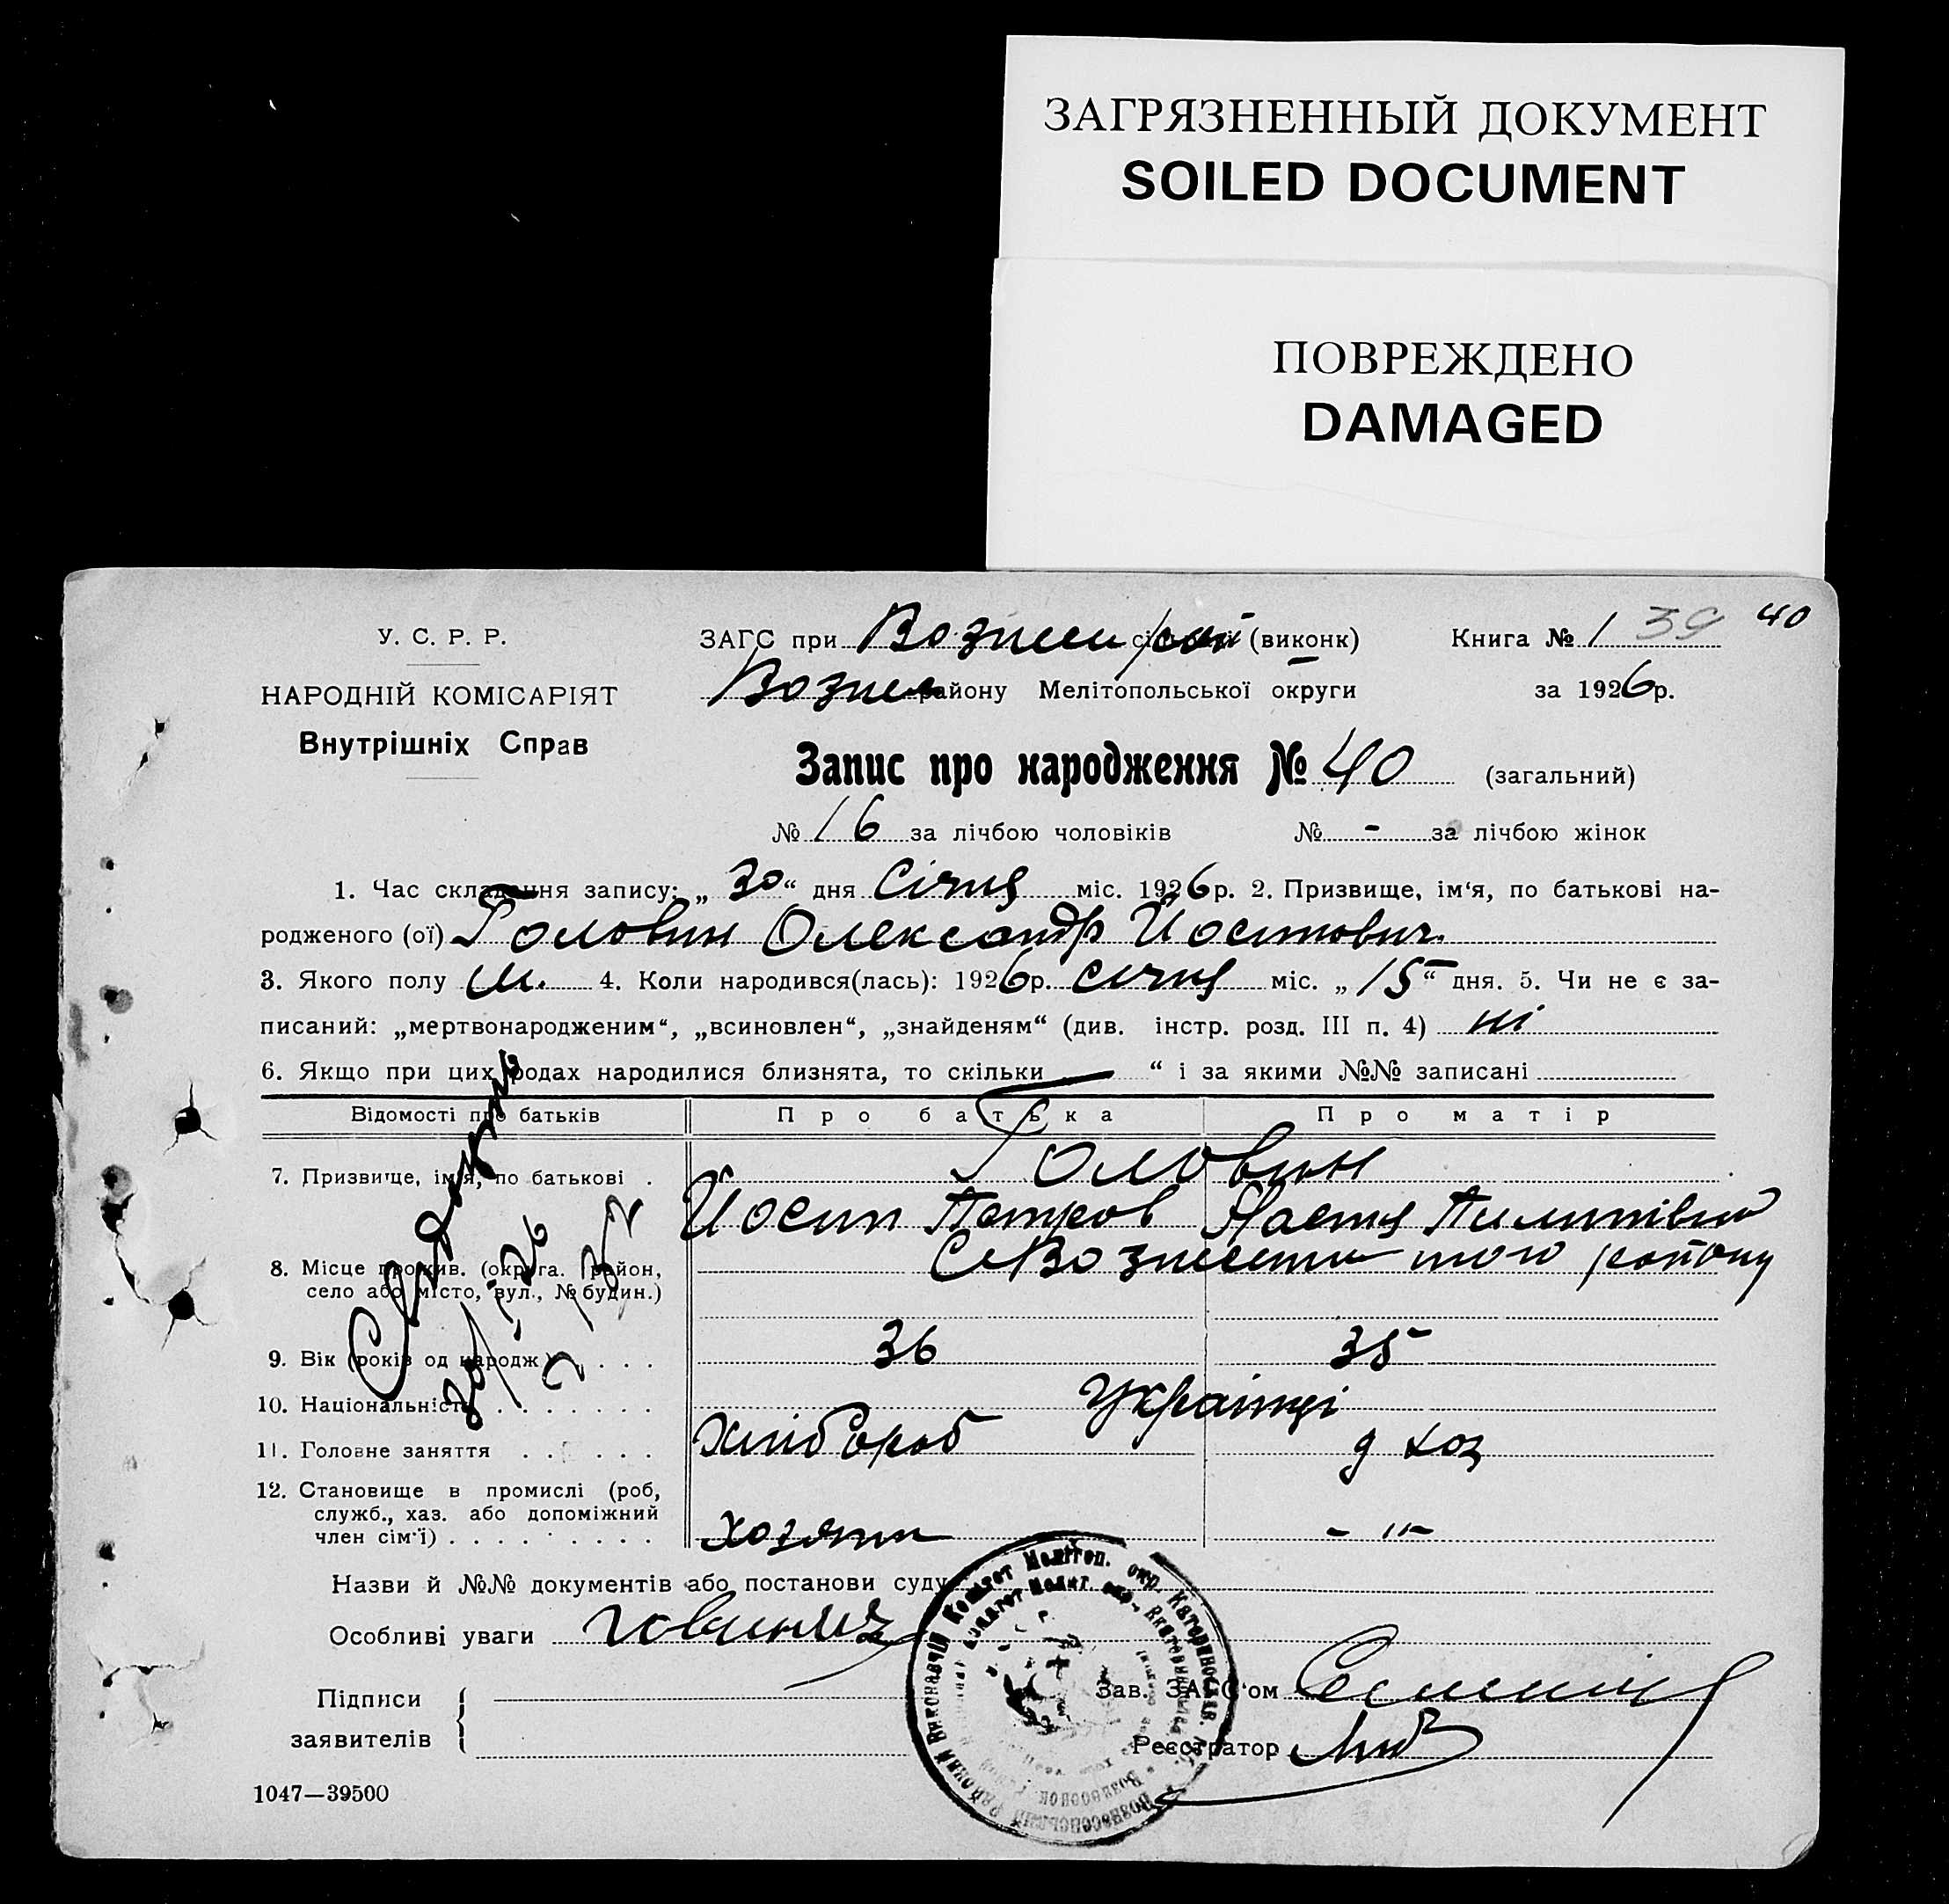 ЗАГРЯЗНЕННЫЙ ДОКУМЕНТ
SOILED DOCUMENT
ПОВРЕЖДЕНО
DAMAGED
40
У. С. Р. Р.
НАРОДНІЙ КОМІСАРІЯТ
Внутрішніх Справ
ЗАГС при (виконк) Книга № 1 39
Вознес району Мелітопольської округи за 1926 р.
Запис про народження № 40 (загальний)
№ 16 за лічбою чоловіків № - за лічбою жінок
1. Час складання запису: „ 30 “ дня Січня міс. 1926 р. 2. Призвище, ім‘я, по батькові на-
родженого (ої) Головин Олександр Йосипович
3. Якого полу М. 4. Коли народився(лась): 1926 р. січня міс. „ 15 “ дня. 5. Чи не є за-
писаний: „мертвонародженим“, „всиновлен“, „знайденям“ (див. інстр. розд. III п. 4) ні
6. Якщо при цих родах народилися близнята, то скільки — “ і за якими №№ записані
Відомості про батьків Про батька Про матір
7. Призвище, ім‘я, по батькові . Головин
Йосип Петров Настя Пилипівна
8. Місце прожив. (округа. район, с Вознесенка того району
село або місто, вул., № будин.)
9. Вік (років од народж.) . . . . 36 35
10. Національність . . . . . . . Українці
11. Головне заняття . . . . . . Хлібороб д хоз
12. Становище в промислі (роб,
служб., хаз. або допоміжний
член сім‘ї) . . . . . . . . . хозяин - " -
Назви й №№ документів або постанови суду
Особливі уваги
Підписи
заявителів
Зав. ЗАГС‘ом
Реєстратор
1047—39500